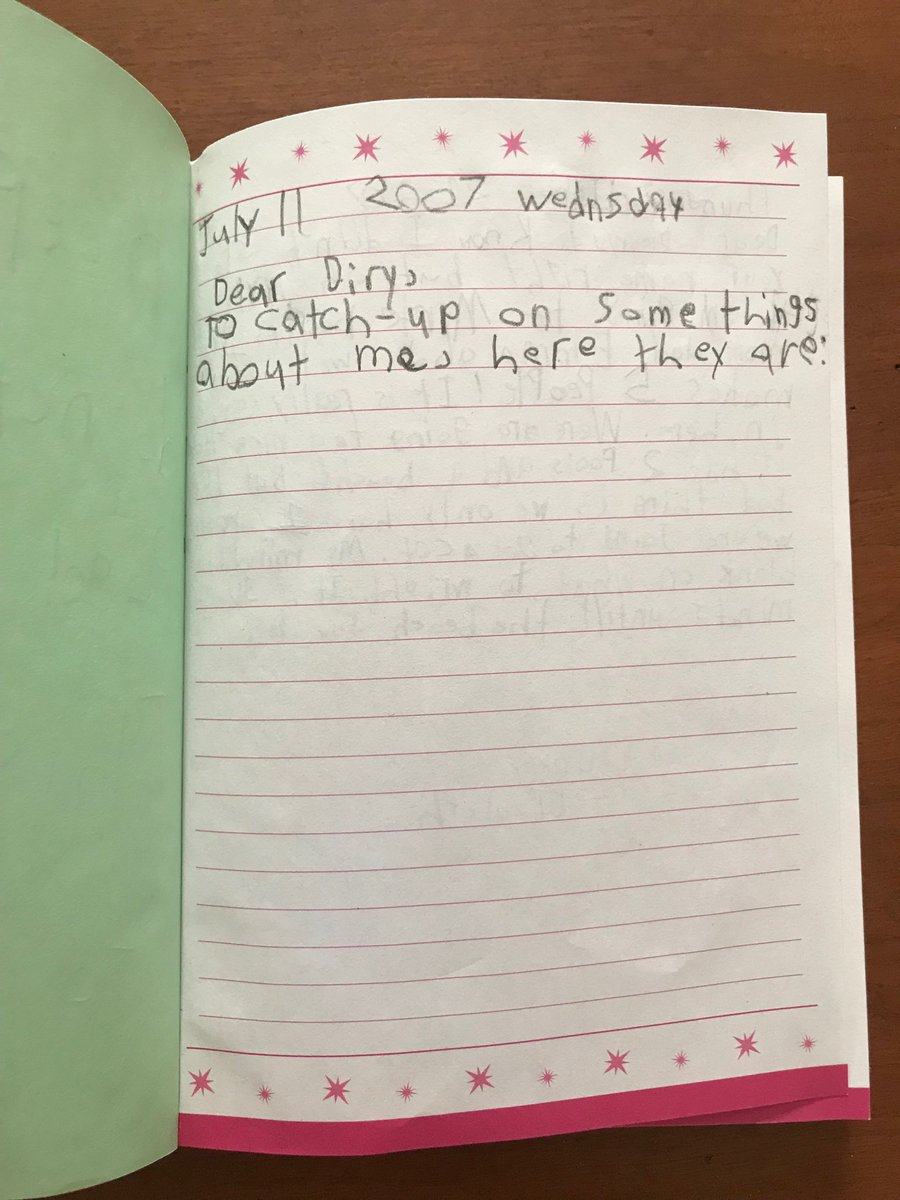 July 11 2007 wednsday
Dear Diry,
To catch-up on some things
about me, here they are: